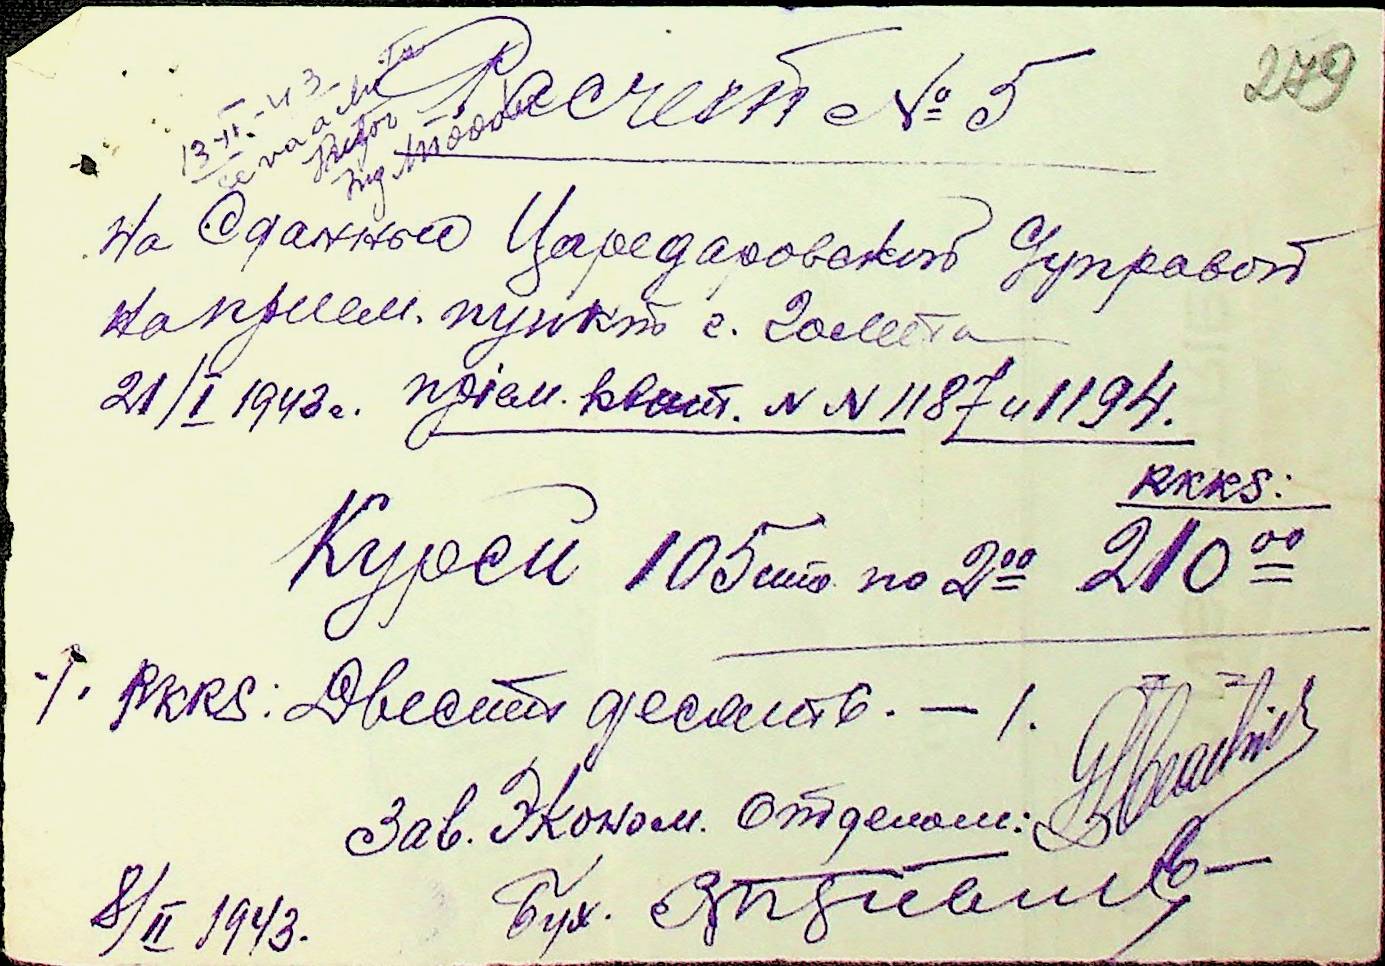 279
Расчет № 5
13-II-43
На Сданные Царедаровской Управой
на прием. пункт с. Голета
21/I 1943 г. пріем. квит. N N 1187 и 1194.
RKKS:
Курей 105 шт по 2 00 210 00
RKKS: Двести десять. — 1.
Зав. Эконом. отделом:
8/II 1943. Бух.